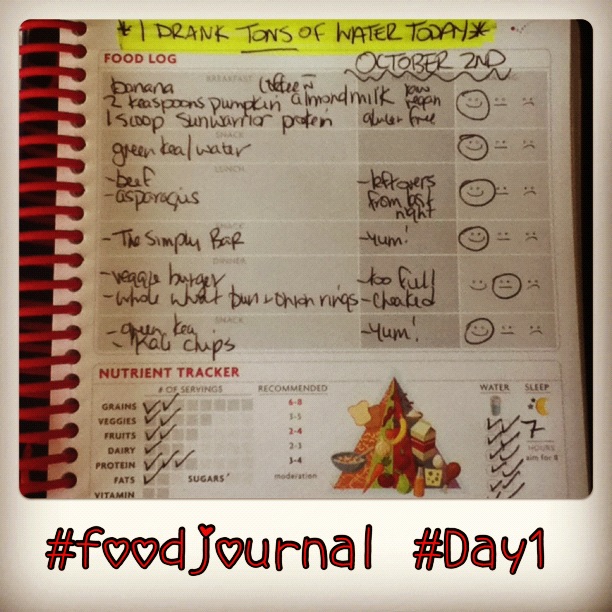 *I DRANK TONS OF WATER TODAY*
FOOD LOG
OCTOBER 2ND
BREAKFAST
banana coffee
2 teaspoons pumpkin almond milk raw
vegan
1 scoop Sunwarrior protein gluten free
SNACK
green tea/water
LUNCH
-beef -leftovers
-asparagus from last
night
SNACK
-The Simply Bar -yum!
DINNER
-veggie burger -too full
-whole wheat bun + onion rings -cheated
SNACK
-green tea -yum!
-Kale chips
NUTRIENT TRACKER
# OF SERVINGS RECOMMENDED WATER SLEEP
GRAINS 6-8
VEGGIES 3-5 7
FRUITS 2-4 HOURS
DAIRY 2-3 aim for 8
PROTEIN 3-4
FATS SUGARS moderation
VITAMIN
#foodjournal #Day1